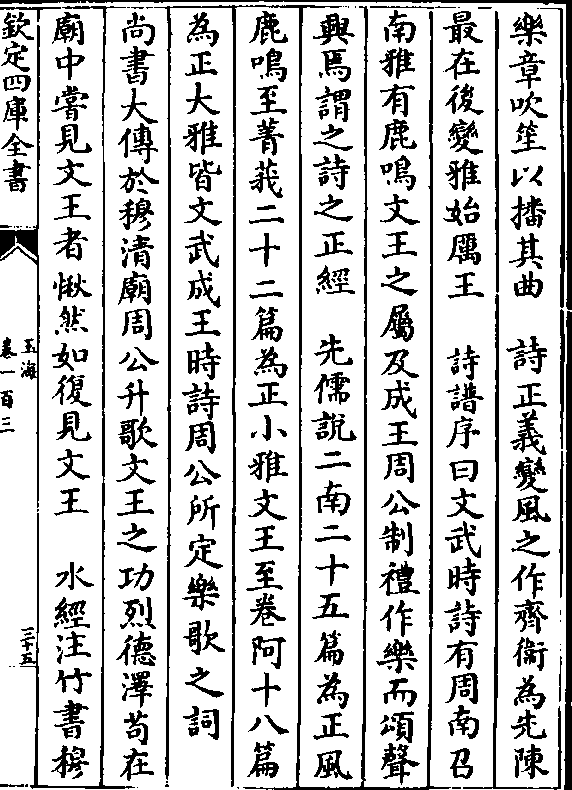 樂章吹笙以播其曲　詩正義變風之作齊衞為先陳
最在後變雅始厲王　詩譜序曰文武時詩有周南召
南雅有鹿鳴文王之屬及成王周公制禮作樂而頌聲
興焉謂之詩之正經　先儒説二南二十五篇為正風
鹿鳴至菁莪二十二篇為正小雅文王至卷阿十八篇
為正大雅皆文武成王時詩周公所定樂歌之詞
尚書大傳於穆清廟周公升歌文王之功烈德澤苟在
廟中嘗見文王者愀然如復見文王　水經注竹書穆
欽定四庫全書
玉海
卷一百三
三十五